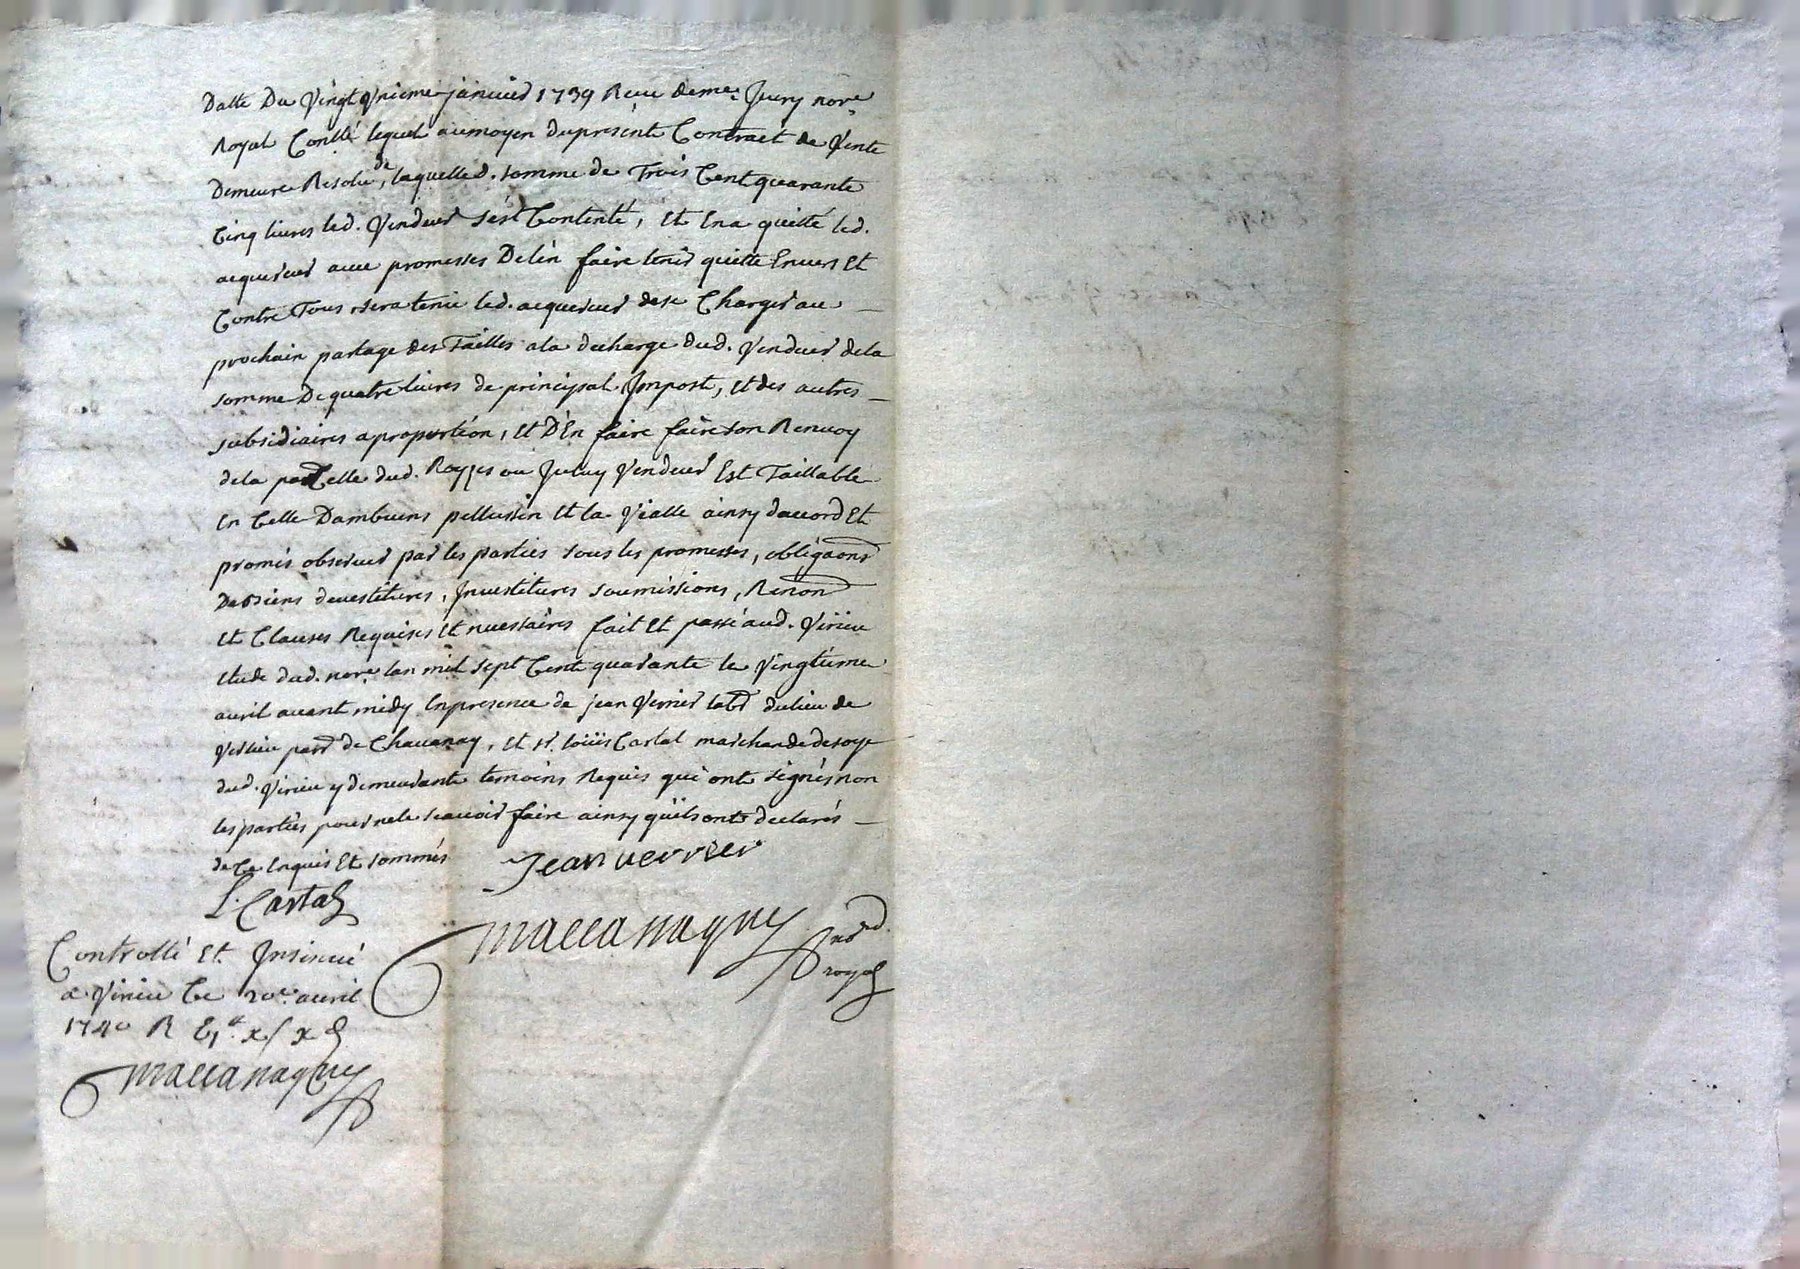 Datte Du Vingt Unieme janvier 1739 Receu de me. Jury nore.
Royal Contle. lequel aumoyen dupresent Contract de Vente
Demeure Resolu, de laquelle d. somme de Trois Cent quarante
Cinq livres led. Vendeur s'est Contenté, Et Ena quitté led.
acquereur avec promesses Delén faire tenir quitte Envers Et
Contre Tous, sera tenu led. acquereur dese Charger au
prochain partage des Tailles ala decharge dud. Vendeur dela
somme De quatre livres de principal Impost, Et des autres
subsidiaires aproportion, Et D'En faire faire son Renvoy
dela parcelle dud. ou Vendeur Est Taillable
En Celle Dambuens pellussin Et la Vialle ainsy daccord Et
promis observer par les parties sous les promesses, obligaons
De Biens devestitures, Investitures soumissions, Renon
Et Clauses Requises Et necessaires fait Et passé aud. Virieu
Etude dud. nore. lan mil sept Cent quarante le Vingtieme
avril avant midy Enpresence de jean Verrier labr dulieu de
Verlieu parr de Chavanay, et sr. loüis Cartal marchand de soye
dud. Virieu y demeurante temoins Requis qui ont signés non
les parties pour nele scavoir faire ainsy quils ont declarés
de Ce Enquis Et sommés
Jean verrier
L. Cartal
maccanagny nore.
royal
Controllé Et Insinué
a Virieu Ce 20e. avril
1740 R
maccanagny